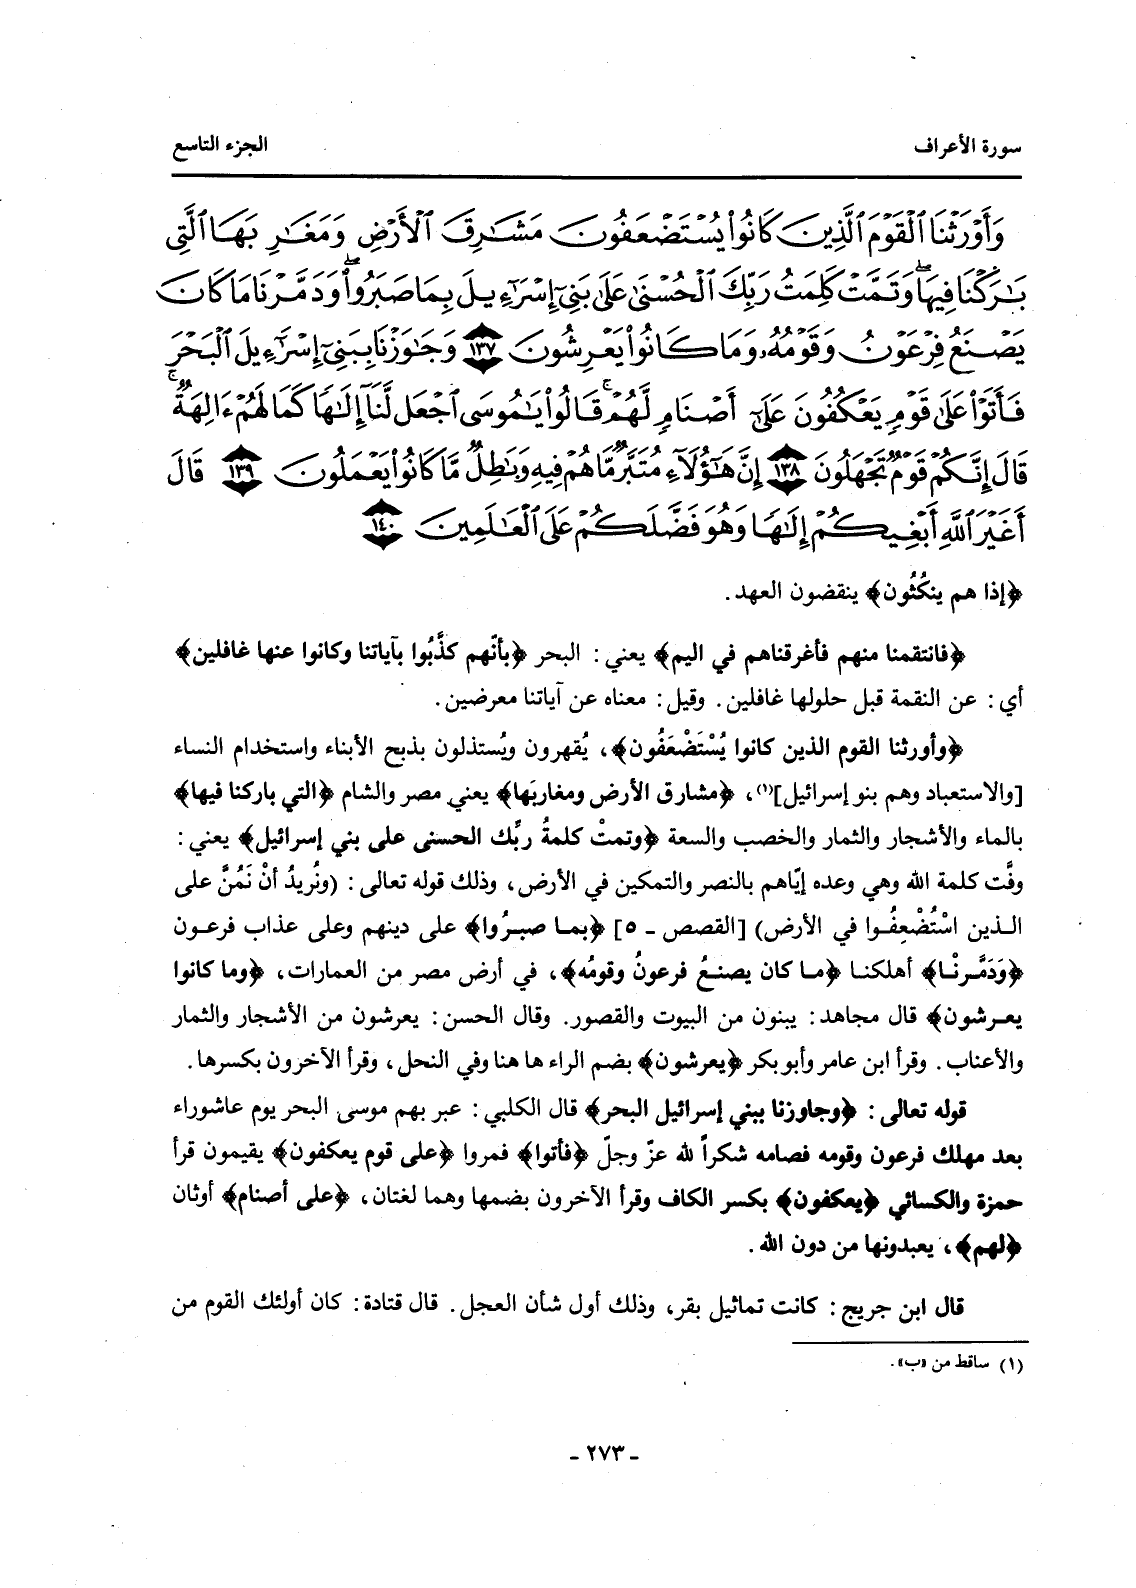 سورة الأعراف
الجزء التاسع
وَأَوْرَثْنَا ٱلْقَوْمَ ٱلَّذِينَ كَانُوا۟ يُسْتَضْعَفُونَ مَشَـٰرِقَ ٱلْأَرْضِ وَمَغَـٰرِبَهَا ٱلَّتِى
بَـٰرَكْنَا فِيهَا ۖ وَتَمَّتْ كَلِمَتُ رَبِّكَ ٱلْحُسْنَىٰ عَلَىٰ بَنِىٓ إِسْرَٰٓءِيلَ بِمَا صَبَرُوا۟ ۖ وَدَمَّرْنَا مَا كَانَ
يَصْنَعُ فِرْعَوْنُ وَقَوْمُهُۥ وَمَا كَانُوا۟ يَعْرِشُونَ ١٣٧ وَجَـٰوَزْنَا بِبَنِىٓ إِسْرَٰٓءِيلَ ٱلْبَحْرَ
فَأَتَوْا۟ عَلَىٰ قَوْمٍ يَعْكُفُونَ عَلَىٰٓ أَصْنَامٍ لَّهُمْ ۚ قَالُوا۟ يَـٰمُوسَى ٱجْعَل لَّنَآ إِلَـٰهًا كَمَا لَهُمْ ءَالِهَةٌ ۚ
قَالَ إِنَّكُمْ قَوْمٌ تَجْهَلُونَ ١٣٨ إِنَّ هَـٰٓؤُلَآءِ مُتَبَّرٌ مَّا هُمْ فِيهِ وَبَـٰطِلٌ مَّا كَانُوا۟ يَعْمَلُونَ ١٣٩ قَالَ
أَغَيْرَ ٱللَّهِ أَبْغِيكُمْ إِلَـٰهًا وَهُوَ فَضَّلَكُمْ عَلَى ٱلْعَـٰلَمِينَ ١٤٠
﴿إذا هم ينكُثُون﴾ ينقضون العهد.
﴿فانتقمنا منهم فأغرقناهم في اليم﴾ يعني: البحر ﴿بأنّهم كذَّبُوا بآياتنا وكانوا عنها غافلين﴾
أي: عن النقمة قبل حلولها غافلين. وقيل: معناه عن آياتنا معرضين.
﴿وأورثنا القوم الذين كانوا يُسْتَضْعَفُون﴾، يُقهرون ويُستذلون بذبح الأبناء واستخدام النساء
[والاستعباد وهم بنو إسرائيل](١)، ﴿مشارق الأرض ومغاربَها﴾ يعني مصر والشام ﴿التي باركنا فيها﴾
بالماء والأشجار والثمار والخصب والسعة ﴿وتمتْ كلمةُ ربِّك الحسنى على بني إسرائيل﴾ يعني:
وفَّت كلمة الله وهي وعده إيّاهم بالنصر والتمكين في الأرض، وذلك قوله تعالى: (ونُريدُ أنْ نَمُنَّ على
الـذين اسْتُضْعِفُـوا في الأرض) [القصص ـ ٥] ﴿بمـا صبـرُوا﴾ على دينهم وعلى عذاب فرعـون
﴿وَدَمَّـرنْـا﴾ أهلكنـا ﴿مـا كان يصنـعُ فرعونُ وقومُه﴾، في أرض مصر من العمارات، ﴿وما كانوا
يعـرشون﴾ قال مجاهد: يبنون من البيوت والقصور. وقال الحسن: يعرشون من الأشجار والثمار
والأعناب. وقرأ ابن عامر وأبو بكر ﴿يعرشون﴾ بضم الراء ها هنا وفي النحل، وقرأ الآخرون بكسرها.
قوله تعالى: ﴿وجاوزنا ببني إسرائيل البحر﴾ قال الكلبي: عبر بهم موسى البحر يوم عاشوراء
بعد مهلك فرعون وقومه فصامه شكراً لله عزّ وجلّ ﴿فأتوا﴾ فمروا ﴿على قوم يعكفون﴾ يقيمون قرأ
حمزة والكسائي ﴿يعكفون﴾ بكسر الكاف وقرأ الآخرون بضمها وهما لغتان، ﴿على أصنام﴾ أوثان
﴿لهم﴾، يعبدونها من دون الله.
قال ابن جريج: كانت تماثيل بقر، وذلك أول شأن العجل. قال قتادة: كان أولئك القوم من
(١) ساقط من «ب».
ـ ٢٧٣ ـ